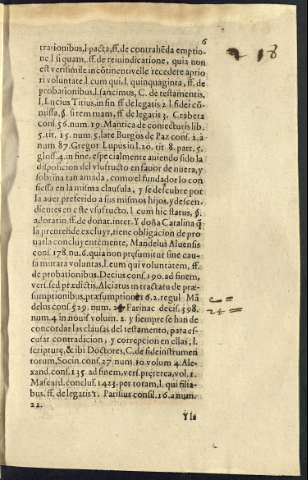 6
218
trarionibus, l. pacta, ff. de contrahẽda emptio-
ne. l. si quam, ff. de reiuindicatione, quia non
est verisimile in cõtinenti velle recedere a prio
ri voluntate l. cum qui. l. quinquaginta, ff. de
probationibus. l. sancimus, C. de testamentis,
l. Lucius Titius, in fin ff. de legatis 2. l. fidei cõ-
missa, §. si rem tuam, ff. de legatis 3. Craueta
cons. 56. num. 19. Mantica de coniecturis lib.
5. tit. 15. num. 5. late Burgos de Paz cons. 2. à
num 87. Gregor Lupus in l. 20. tit 8. part. 5.
gloss. 4. in fine. especialmente auiendo sido la
disposicion del vsufructo en fauor de nuera, y
sobrina tan amada, como el fundador lo con
fiessa en la misma clausula, y se descubre por
la auer preferido a sus mismos hijos, y descen-
dientes en este vsufructo. l. cum hic status, §.
adoratio. ff. de donat. inter. Y doña Catalina q̃
la pretende excluyr, tiene obligacion de pro-
uarla concluyentemente, Mandelus Aluensis
cons 178. nu. 6. quia non presumitur sine cau-
sa mutara voluntas. l. eum qui voluntatem, ff.
de probationibus. Decius cons. 190. ad finem,
vers. sed prædictis. Alciatus in tractatu de præ-
sumptionibus, præsumptione 16. 2. regul Mã
delus cons. 529. num. 24. Farinac decis. 398.
num. 4. in nouis volum. 2. y siempre se han de
concordar las clausulas del testamento, para es-
cusar contradicion, y correpcion en ellas, l.
scripturę, & ibi Doctores, C. de fide instrumen
torum, Socin. cons. 27. num 10. volum 4. Ale-
xand. cons. 135. ad finem, vers. pręterea, vol. 1.
Mascard. conclus. 1423. per totam, l. qui filia-
bus, ff. de legatis 1. Parisius consil. 16. a num.
22.
Y la